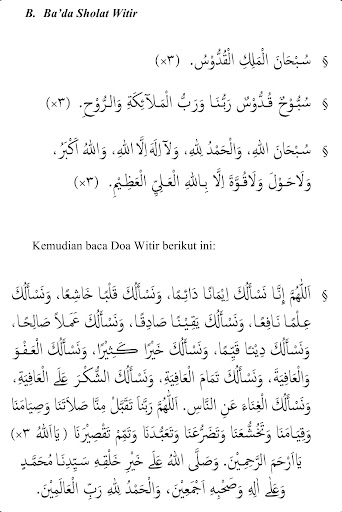 B. Ba'da Sholat Witir
§ سُبْحَانَ الْمَلِكِ الْقُدُّوْسُ. (×٣)
§ سُبُّوْحٌ قُدُّوْسٌ رَبُّنَا وَرَبُّ الْمَلَآئِكَةِ وَالرُّوْحِ. (×٣)
§ سُبْحَانَ اللهِ، وَالْحَمْدُ لِلهِ، وَلَآ اِلَهَ اِلَّا اللهِ، وَاللهُ اَكْبَرُ،
وَلَاحَوْلَ وَلَاقُوَّةَ اِلَّا بِاللهِ الْعَلِيِّ الْعَظِيْمِ. (×٣)
Kemudian baca Doa Witir berikut ini:
§ اَللّٰهُمَّ إِنَّا نَسْأَلُكَ إِيْمَانًا دَائِمًا، وَنَسْأَلُكَ قَلْبًا خَاشِعًا، وَنَسْأَلُكَ
عِلْمًا نَافِعًا، وَنَسْأَلُكَ يَقِيْنًا صَادِقًا، وَنَسْأَلُكَ عَمَلاً صَالِحًا،
وَنَسْأَلُكَ دِيْنًا قَيِّمًا، وَنَسْأَلُكَ خَيْرًا كَثِيْرًا، وَنَسْأَلُكَ الْعَفْوَ
وَالْعَافِيَةَ، وَنَسْأَلُكَ تَمَامَ الْعَافِيَةِ، وَنَسْأَلُكَ الشُّكْرَ عَلَى الْعَافِيَةِ،
وَنَسْأَلُكَ الْغِنَاءَ عَنِ النَّاسِ. اَللّٰهُمَّ رَبَّنَا تَقَبَّلْ مِنَّا صَلَاتَنَا وَصِيَامَنَا
وَقِيَامَنَا وَتَخُشُّعَنَا وَتَضَرُّعَنَا وَتَعَبُّدَنَا وَتَمِّمْ تَقْصِيْرَنَا ( يَااَللهُ ×٣)
يَااَرْحَمَ الرَّحِمِيْنَ. وَصَلَّى اللهُ عَلَى خَيْرِ خَلْقِهِ سَيِّدِنَا مُحَمَّدٍ
وَعَلَى اٰلِهِ وَصَحْبِهِ اَجْمَعِيْنَ، وَالْحَمْدُ لِلهِ رَبِّ الْعَالَمِيْنَ.